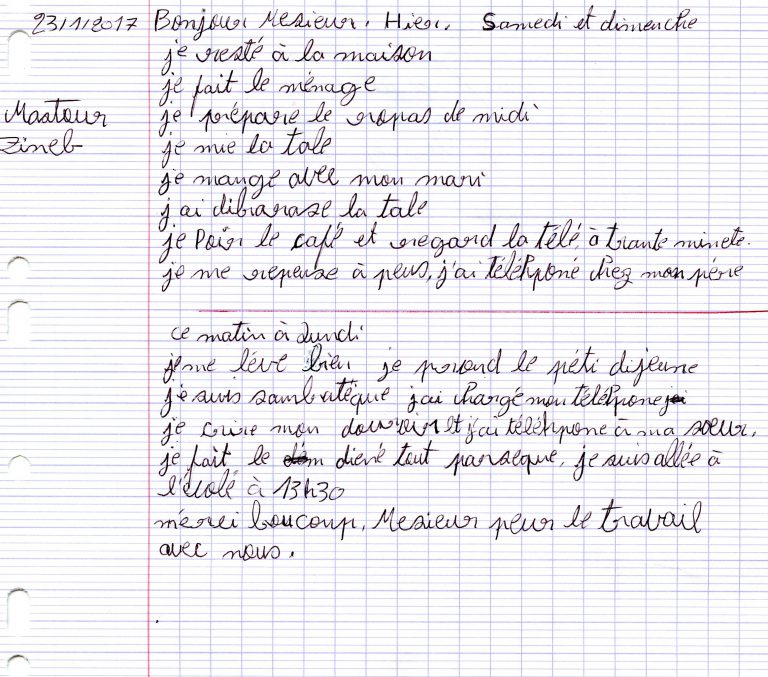 23/1/2017 Bonjour Mesieur. Hier, Samedi et dimenche
je resté à la maison
je fait le ménage
Maatour je prépare le ropas de midi
Zineb je mie la tale
je mange avec mon mari
j ai dibarase la tale
je Poir le café et regard la télé à trante minete.
je me repeuse à peus, j'ai téléhponé chez mon père
ce matin à Lundi
je me léve bien je prond le péti dijeune
je suis sambatéque j'ai chargé mon téléhpone
je crire mon douvoir et j'ai téléhpone à ma sœur,
je fait le diené tout parseque, je suis allée à
l'écolé à 13h30
mérci boucoup, Mesieur peur le travail
avec nous.